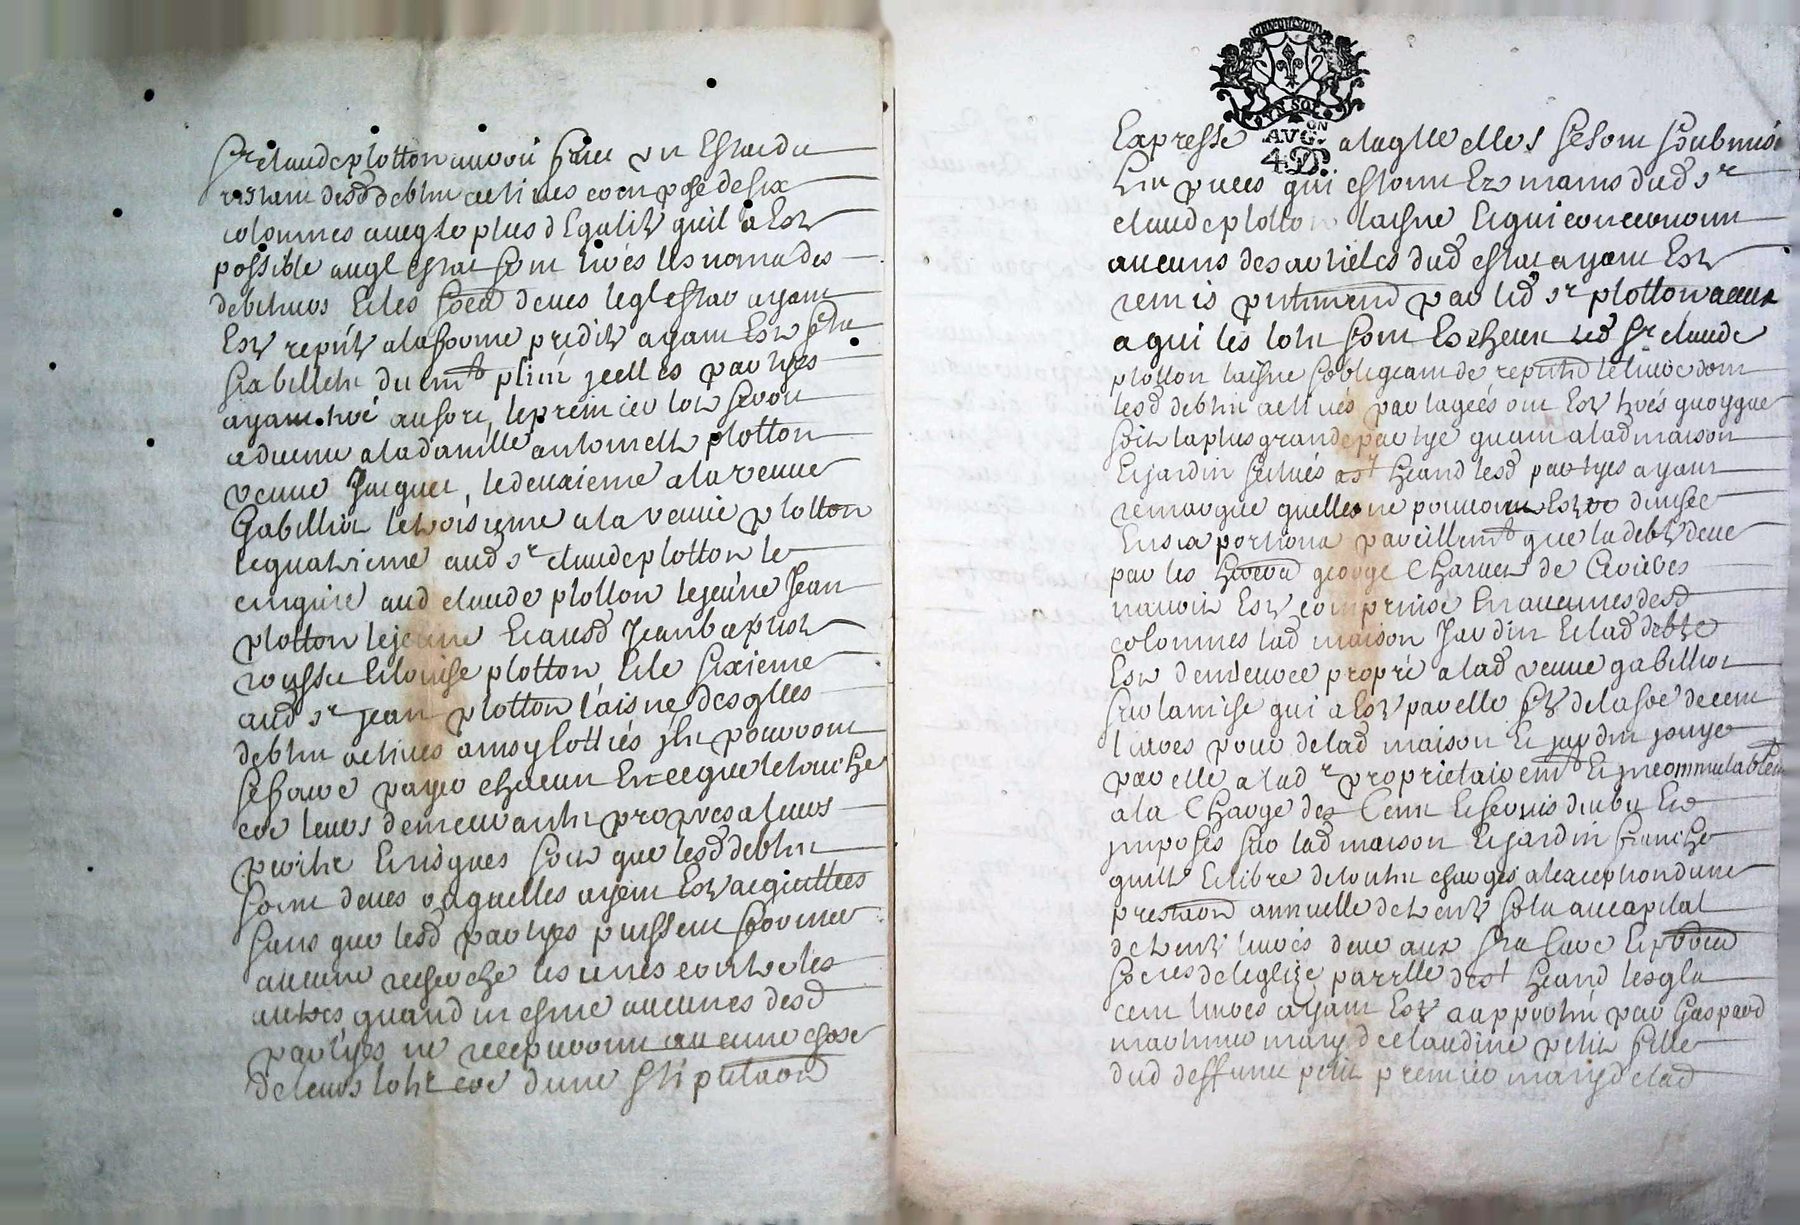 Sr claude plotton auroit faict un Estat du
restant desd debtes actives composé de six
colomnes avecq le plus d Egalité quil a Esté
possible auql estat sont tirés les noms des
debiteurs Et les sommes deues leql estat ayant
Esté reputé a la forme predite ayant Esté fait
six billets du entre icelles partyes
ayant tiré au sort, le premier lot seroit
advenu a lad damlle antoinette plotton
veuve Jacquet, le deuxieme a la veuve
Gabillion le troisieme a la veuve plotton
le quatrieme aud sr claude plotton le
cinquie aud claude plotton le jeune Jean
plotton le jeune Et ausd Jean baptiste
rousset Et louise plotton Et le sixieme
aud sr jean plotton laisné desqlles
debtes actives ainsy lotties ils pourront
se faire payer chacun En ce que le touche
car leurs demeurants propres a leurs
perils Et risques soit que lesd debtes
soint deues ou quelles ayent Esté acquittees
sans que lesd partyes puissent former
aucune recherche les unes contre les
autres quand mesme aucunes desd
partyes ne recepvroint aucune chose
de leurs lots car d une stipulaon
YN SOL
ON
AVG.
4 D.
Expresse a laqlle elles se sont soubmises
Les pieces qui estoint Ez mains dud sr
claude plotton laisné Et qui concernoint
aucuns des articles dud estat ayant Esté
remis par led sr plotton a ceux
a qui les lots sont Escheus led sr claude
plotton laisné sobligeant de le livre dont
lesd debtes actives partagées ont Esté tirés quoyque
soit la plus grande partye quant a lad maison
Et jardin situés a st heand lesd partyes ayant
remarqué quelles ne pouvoint Estre divisée
En six portions pareillemt que la debte deue
par les george Charues de
navoit Esté comprinse En aucunes desd
colomnes lad maison Jardin Et lad debte
Est demeurée propre a lad veuve gabillion
sur la mise qui a Esté par elle fte de la soe de cent
livres pour de lad maison Et jardin jouyr
par elle a lad propriétairemt Et incommutablemt
a la Charge des Cens Et servis deubs Et
imposés sur lad maison Et jardin franche
quitte Et libre de toutes charges a lexception dune
prestaon annuelle de trente sols au capital
de trente livres deue aux srs curé Et
socres de leglize parrlle de st heand lesqls
cent livres ayant Esté apportés par Gaspard
mary de claudine petit fille
dud deffunt petit premier mary de lad